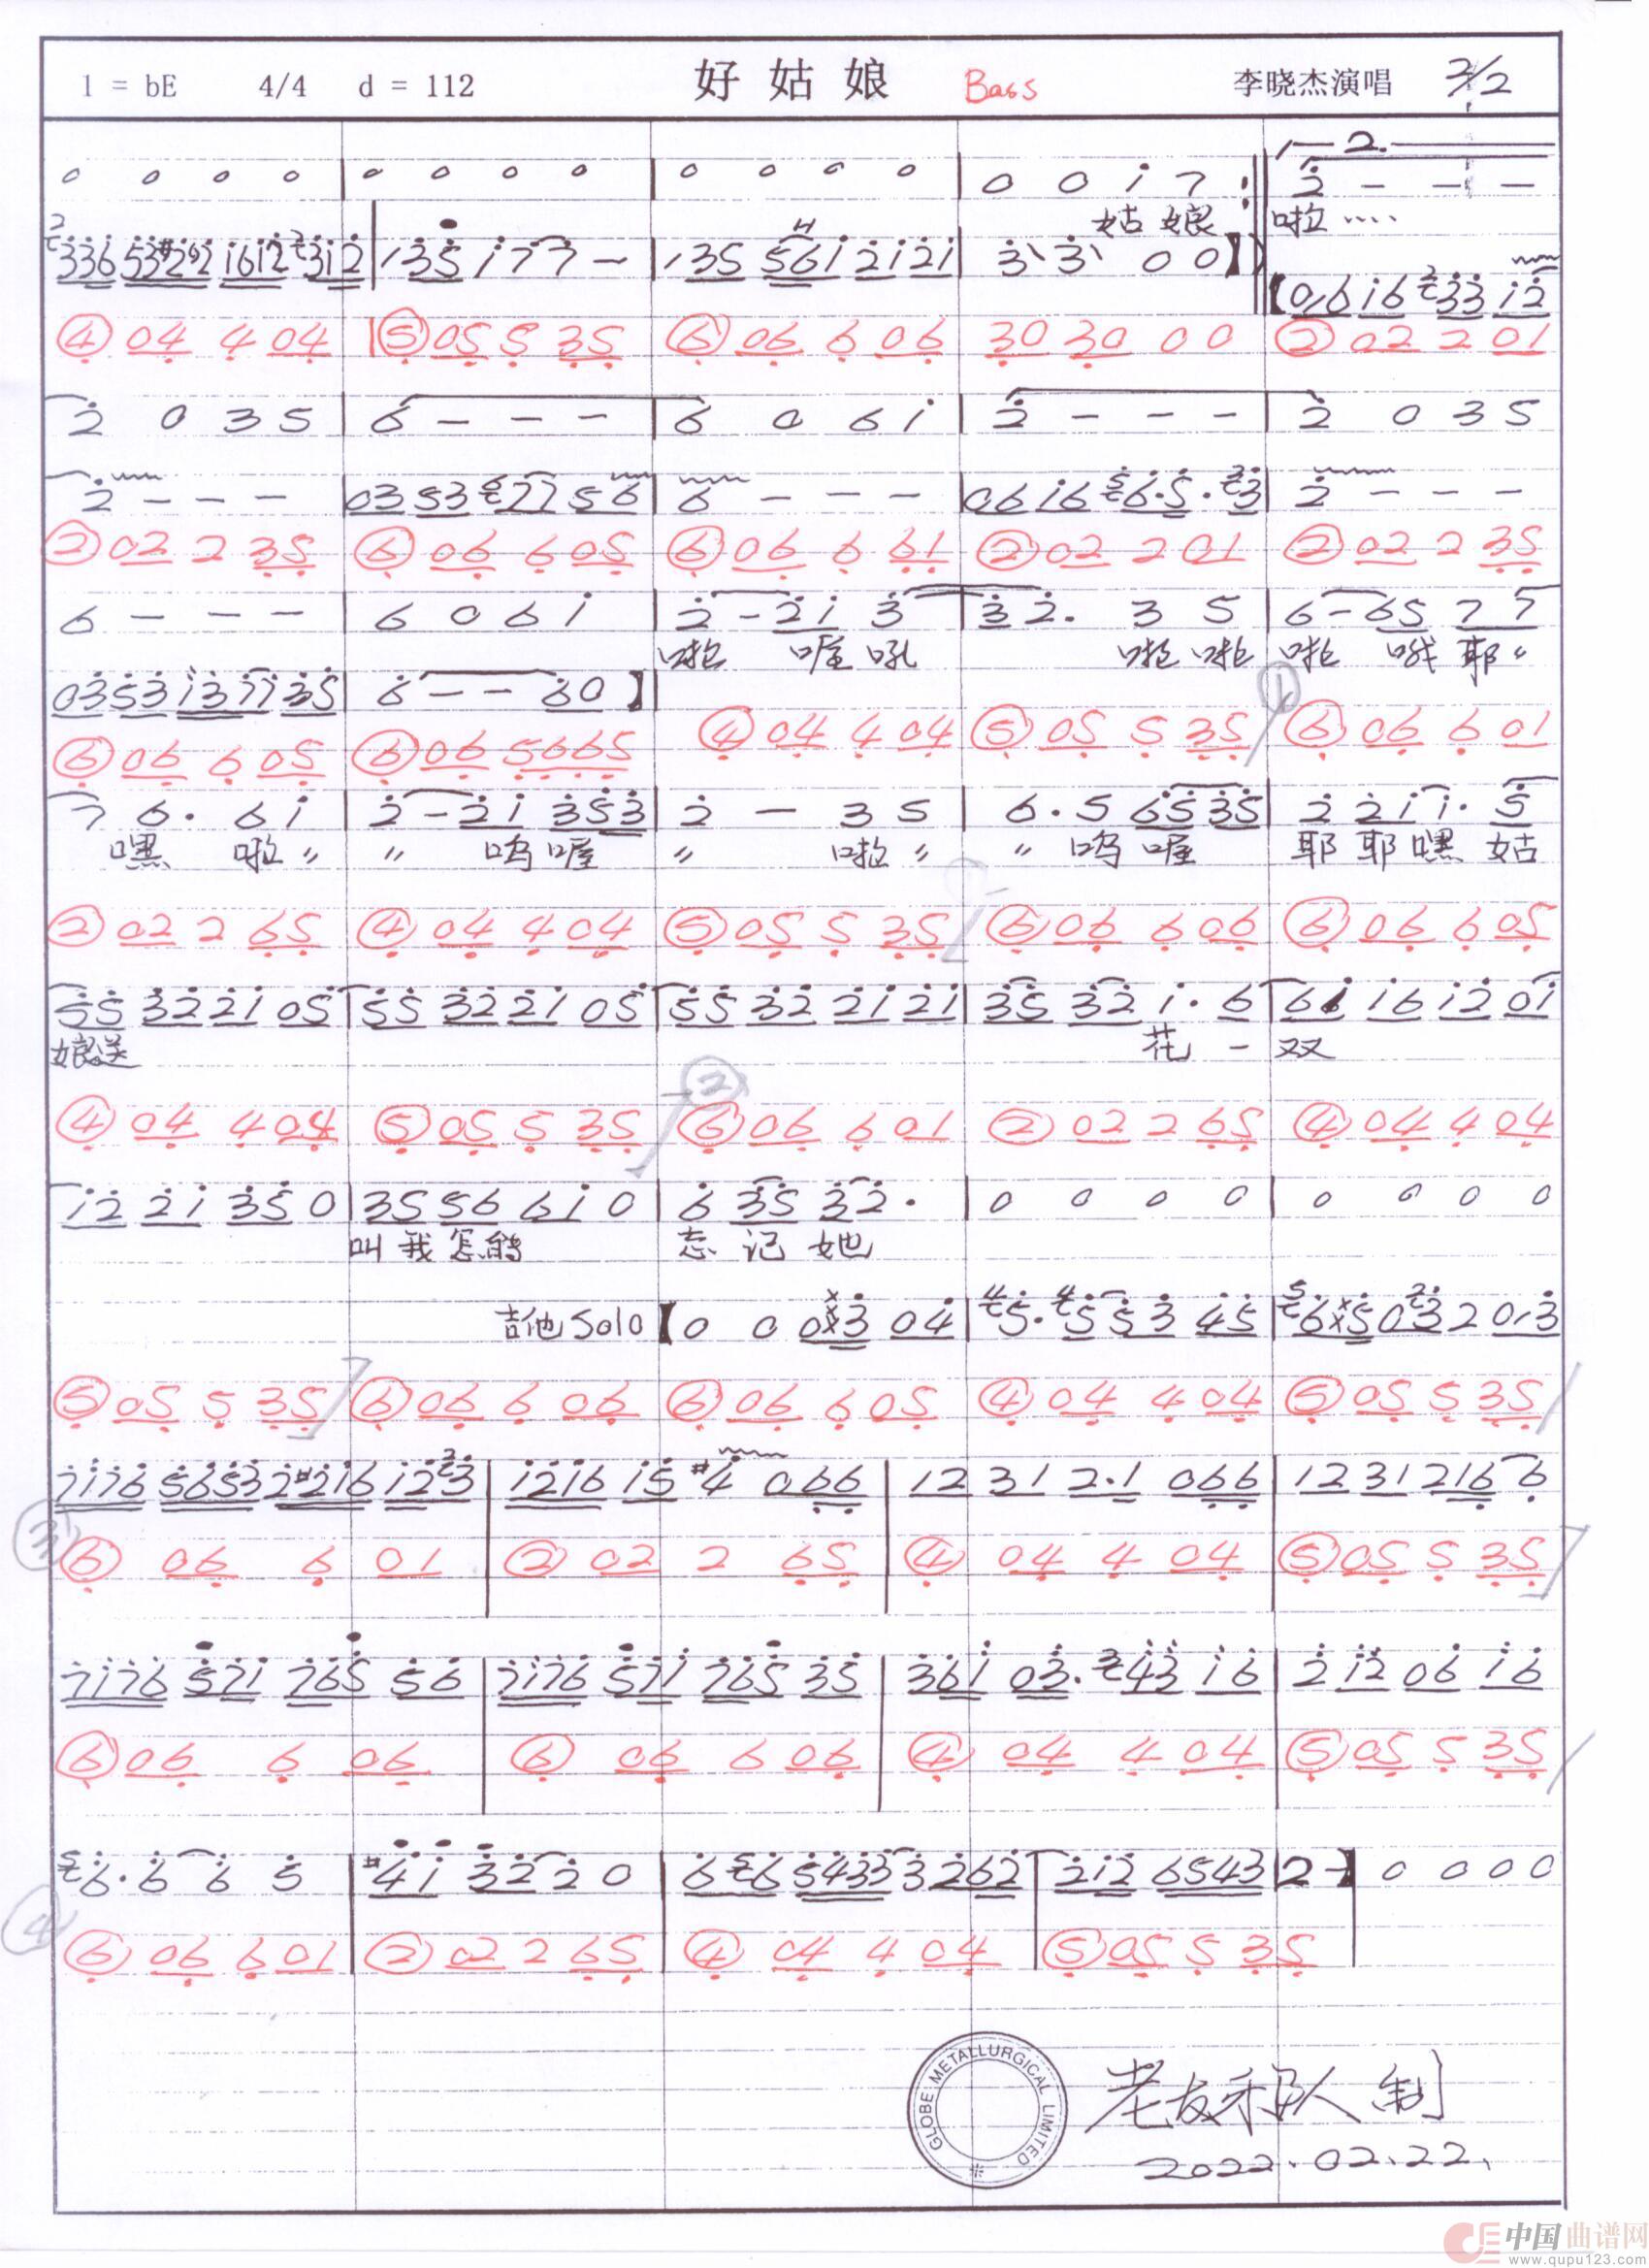 1 = bE 4/4 d = 112 好姑娘 Bass 李晓杰演唱 2/2
2.
0 0 0 0 | 0 0 0 0 | 0 0 0 0 | 0 0 i 7 :‖ 2 - - -
姑 娘 啦 ····
④ 04 4 04 | ⑤ 05 5 35 ⑥ 06 6 06 30 30 0 0 ② 02 2 01
2 0 3 5 | 6 - - - | 6 0 6 i | 2 - - - | 2 0 3 5
2 - - - | 03 53 77 56 | 6 - - - | 06 16 6·5·3 | 2 - - -
② 02 2 35 ⑥ 06 6 05 ⑥ 06 6 61 ② 02 2 01 ② 02 2 35
6 - - - | 6 0 6 i | 2 - 2i 3 | 3 2. 3 5 | 6 - 65 7 7
啦 喔 吼 啦 啦 啦 哦 耶〃
①
⑥ 06 6 05 ⑥ 06 5665 ④ 04 4 04 ⑤ 05 5 35 ⑥ 06 6 01
7 6. 6 i | 2 - 2i 353 | 2 - 3 5 | 6. 5 65 35 | 2 2 i i. 5
嘿 啦〃 〃 呜 喔 〃 啦〃 〃 呜 喔 耶 耶 嘿 姑
② 02 2 65 ④ 04 4 04 ⑤ 05 5 35 ⑥ 06 6 06 ⑥ 06 6 05
55 32 2i 05 | 55 32 2i 05 | 55 32 2i 2i | 35 32 i. 6 | 6i i6 i2 0i
娘送 花 一 双
②
④ 04 4 04 ⑤ 05 5 35 ⑥ 06 6 01 ② 02 2 65 ④ 04 4 04
i2 2i 35 0 | 35 56 6i 0 | 6 35 32. | 0 0 0 0 | 0 0 0 0
叫 我 怎能 忘 记 她
吉他 Solo
⑤ 05 5 35 ⑥ 06 6 06 ⑥ 06 6 05 ④ 04 4 04 ⑤ 05 5 35
③
⑥ 06 6 01 | ② 02 2 65 | ④ 04 4 04 | ⑤ 05 5 35
7i76 57i 765 56 | 7i76 57i 765 35 | 36i 03. 43 i6 | 2 i2 06 i6
⑥ 06 6 06 ⑥ 06 6 06 ④ 04 4 04 ⑤ 05 5 35
④
⑥ 06 6 01 | ② 02 2 65 | ④ 04 4 04 | ⑤ 05 5 35
GLOBE METALLURGICAL LIMITED
老友乐队 制
2022.02.22.
中国曲谱网
www.qupu123.com